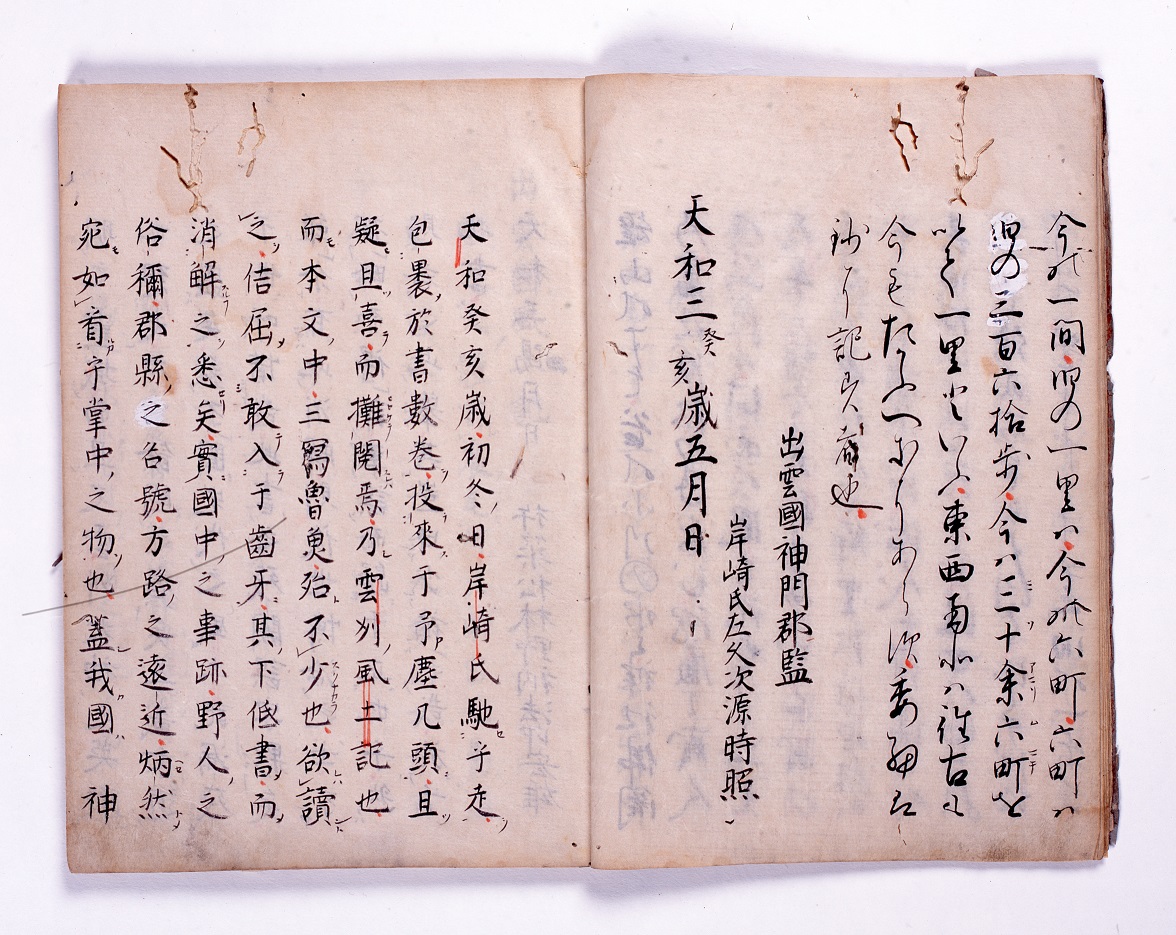 今の一間・旧の一里ハ・今の六町・六町ハ
旧の三百六拾歩・今ハ三十余六町を
以て一里といふ・東西南北ハ往古も
今もたかへありあらす・委細右
記
天和三癸亥歳五月日
出雲國神門郡監
岸崎氏左久次源時照
天和癸亥歳初冬日岸崎氏馳字走
包裹於書數巻投來于予塵几頭且
疑且喜而攤閲焉乃雲列風土記也
而本文中三寫魯魚殆不少也欲讀
之佶屈不敢入于齒牙其下低書而
消解之悉矣實國中之事跡野人之
俗稱郡縣之名號方路之遠近炳然
宛如看乎掌中之物也蓋我國 神